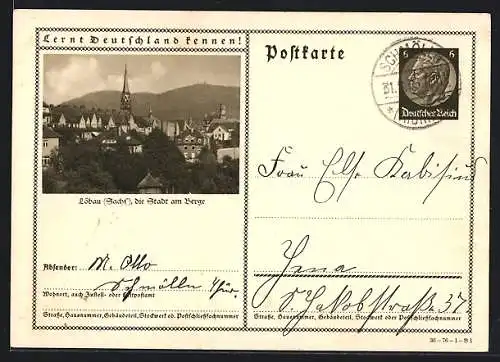 Lernt Deutschland kennen!
Löbau (Sachs), die Stadt am Berge
Absender: M. Otto
Schmölln Thür.
Wohnort, auch Zustell- oder Leitpostamt
Straße, Hausnummer, Gebäudeteil, Stockwerk od. Postschließfachnummer
Postkarte
SCHMÖLLN
31.
6 6
Deutsches Reich
Frau Else
Jena
Jakobstraße 37
Straße, Hausnummer, Gebäudeteil, Stockwerk oder Postschließfachnummer
36-76-1-B1